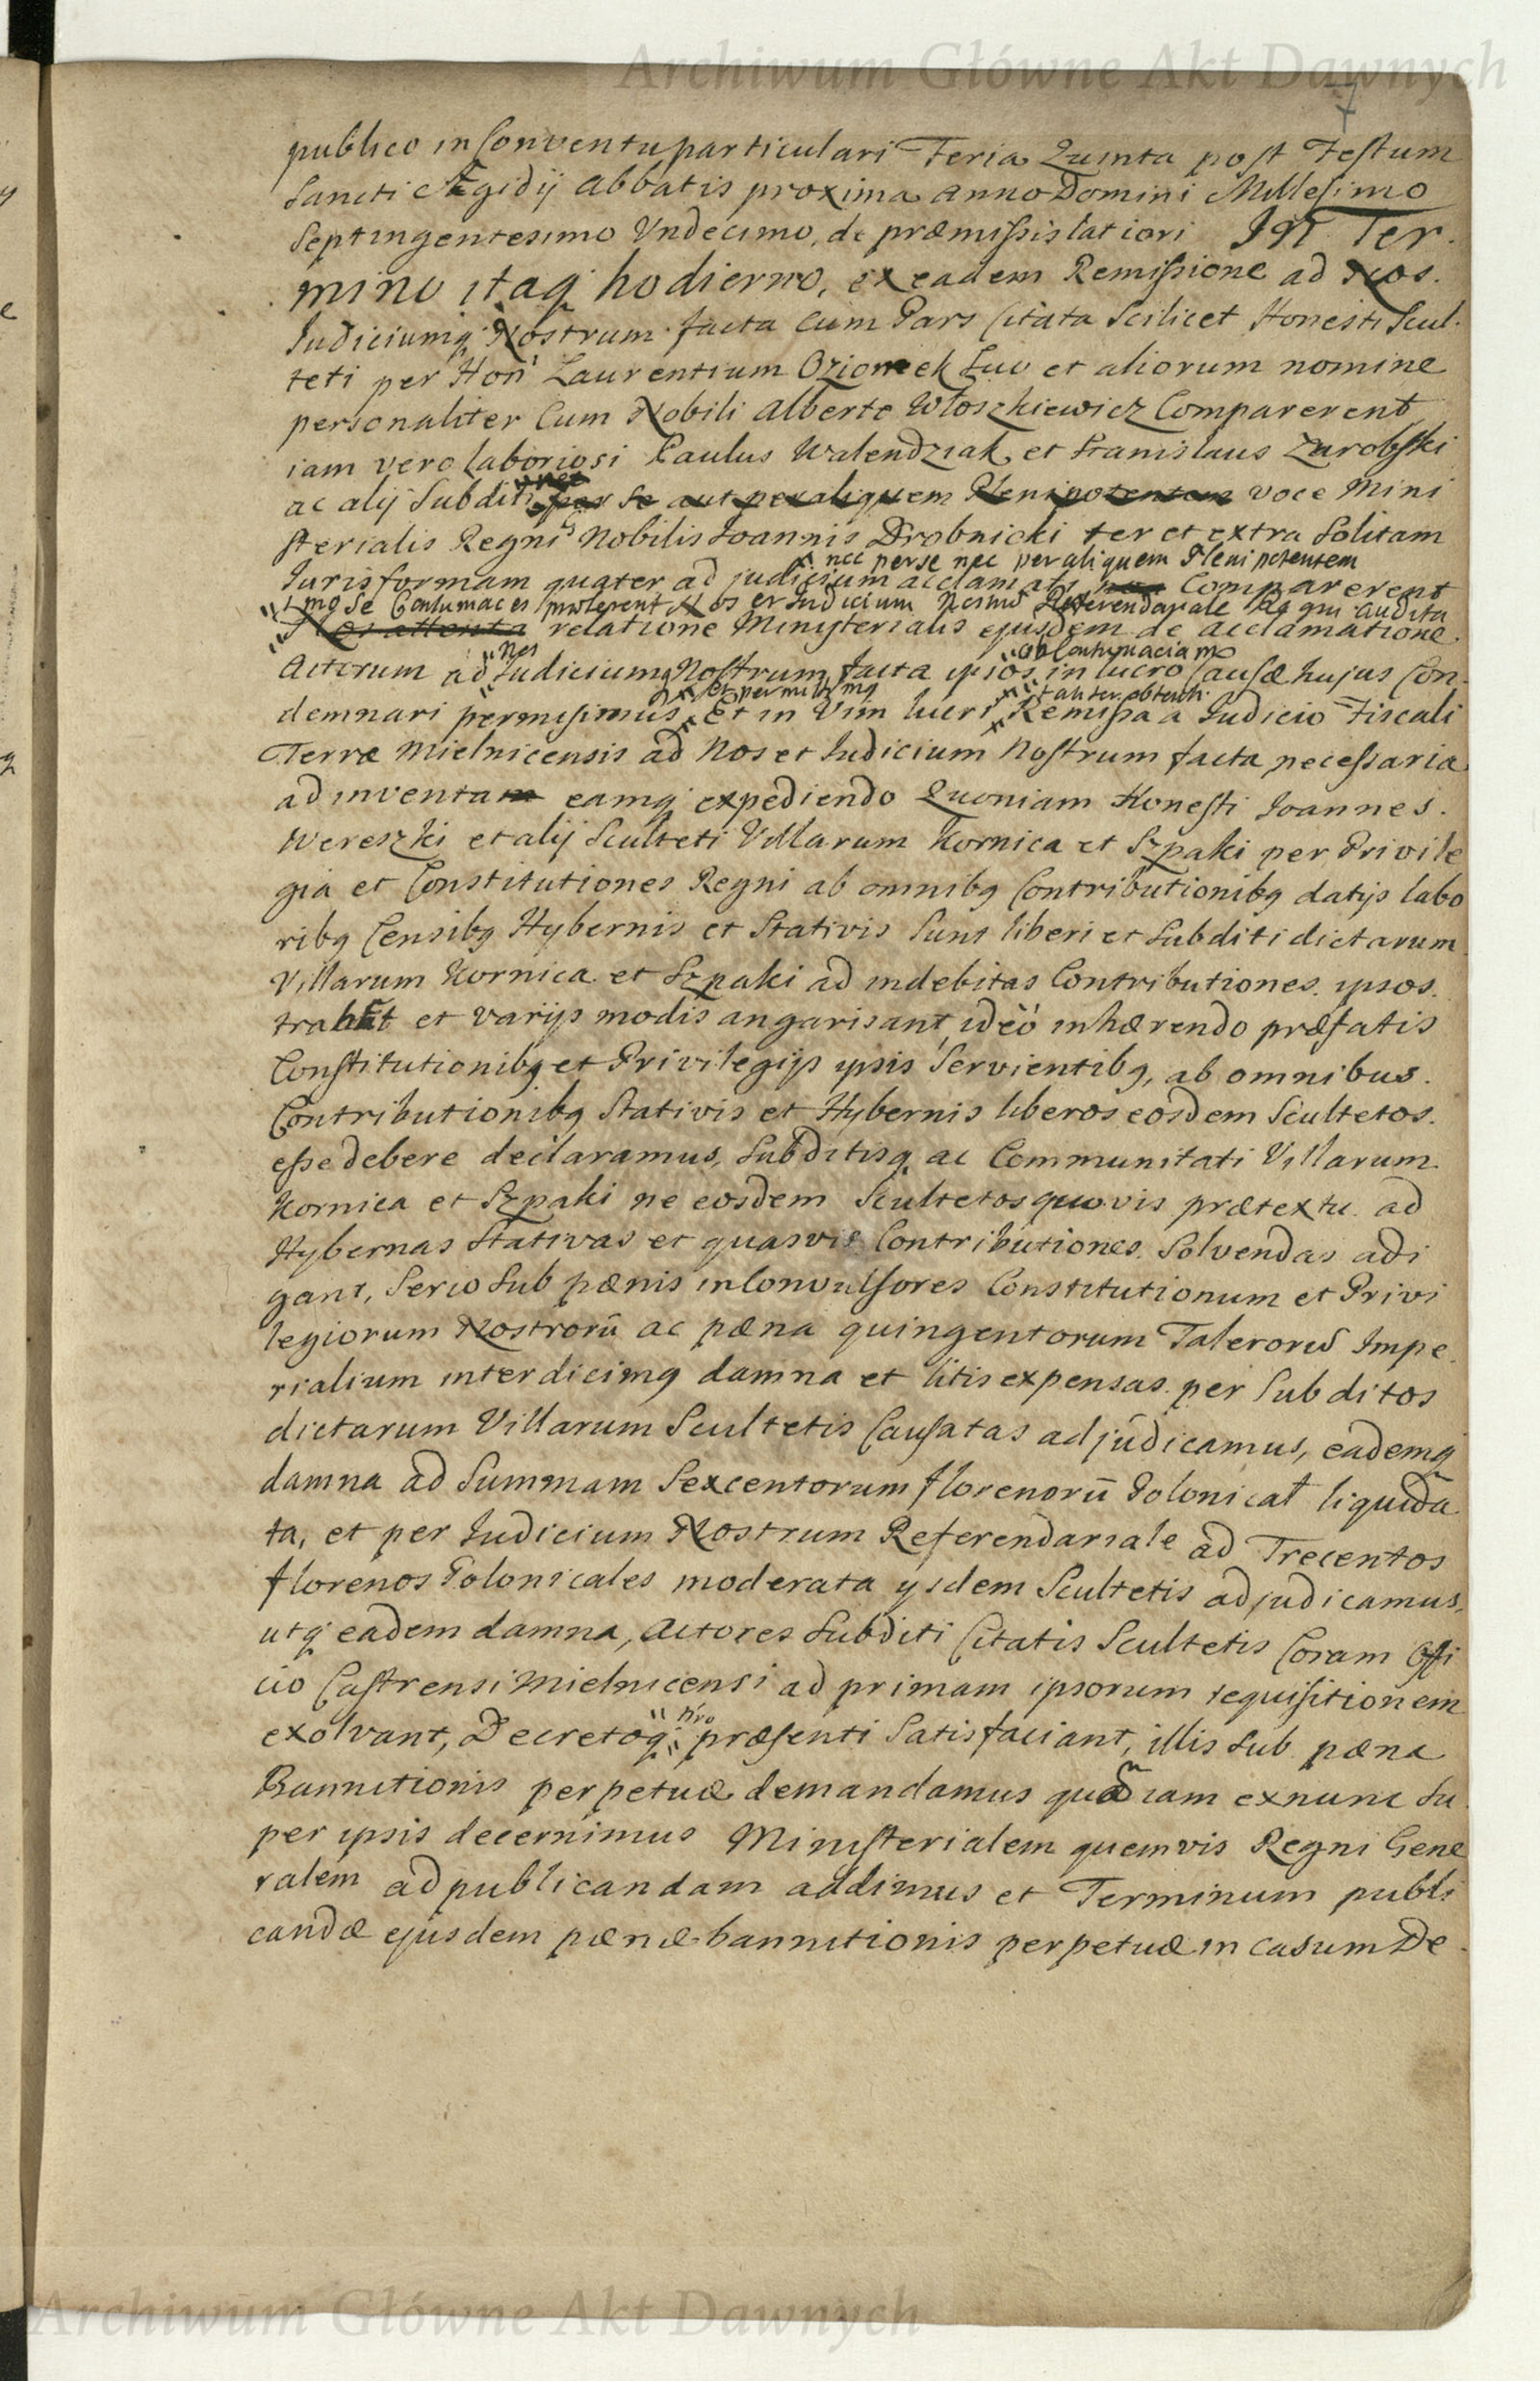 Archiwum Główne Akt Dawnych
7
publico in Conventu particulari Feria Quinta post Festum
Sancti Ægidij Abbatis proxima Anno Domini Millesimo
Septingentesimo Undecimo, de præmissis latiori In Ter-
mino itaq hodierno, ex eadem Remissione ad Nos.
Judiciumq Nostrum facta cum Pars Citata Scilicet Honesti Scul-
teti per Hon Laurentium Oziomek Suo et aliorum nomine
personaliter Cum Nobili Alberto Włoszkiewicz Comparerent
iam vero laboriosi Paulus Walendziak et Stanislaus Zarobski
ac alij Subditi per se aut per aliquem Plenipotentem voce Mini
sterialis Regni Nobilis Joannis Drobnicki ter et extra Solitam
nec per se nec per aliquem Plenipotentem
Juris formam quater ad judicium acclamati, non Comparerent
imo se Contumaces Nos et Judicium Referendariale Regni audita
Nos attenta relatione Ministerialis ejusdem de acclamatione.
Nos ob Contumaciam
Actorum ad Judiciumq Nostrum facta ipsos in lucro Causæ hujus Con-
et permittimq taliter obtenti
demnari permisimus, Et in Vim lucri Remissa a Judicio Fiscali
Terræ Mielnicensis ad Nos et Judicium Nostrum facta necessaria
adinventa eamq expediendo Quoniam Honesti Joannes.
Wereszki et alij Sculteti Villarum Kornica et Szpaki per Privile
gia et Constitutiones Regni ab omnibq Contributionibq datijs labo
ribq Censibq Hybernis et Stativis Sunt liberi et Subditi dictarum
Villarum Kornica et Szpaki ad indebitas Contributiones ipsos.
trahunt et varijs modis angarisant, ideo inhærendo præfatis
Constitutionibq et Privilegijs ipsis Servientibq, ab omnibus.
Contributionibq Stativis et Hybernis liberos eosdem Scultetos.
esse debere declaramus, Subditisq ac Communitati Villarum
Kornica et Szpaki ne eosdem Scultetos quovis prætextu ad
Hybernas Stativas et quasvis Contributiones Solvendas adi
gant, Serio Sub pænis in Convulsores Constitutionum et Privi
legiorum Nostrorū ac pæna quingentorum Talerorū Impe
rialium interdicimq damna et litis expensas per Subditos
dictarum Villarum Scultetis Causatas adjudicamus, eademq
damna ad Summam Sexcentorum florenorū Polonical liquida
ta, et per Judicium Nostrum Referendariale ad Trecentos
florenos Polonicales moderata ijsdem Scultetis adjudicamus,
utq eadem damna, Actores Subditi Citatis Scultetis Coram Offi
cio Castrensi Mielnicensi ad primam ipsorum requisitionem
nro
exolvant, Decretoq præsenti Satisfaciant, illis Sub pæna
Bannitionis perpetuæ demandamus quam iam ex nunc Su
per ipsis decernimus Ministerialem quemvis Regni Gene
ralem ad publicandam addimus et Terminum publi
candæ ejusdem pænæ bannitionis perpetuæ in casum De
Archiwum Główne Akt Dawnych